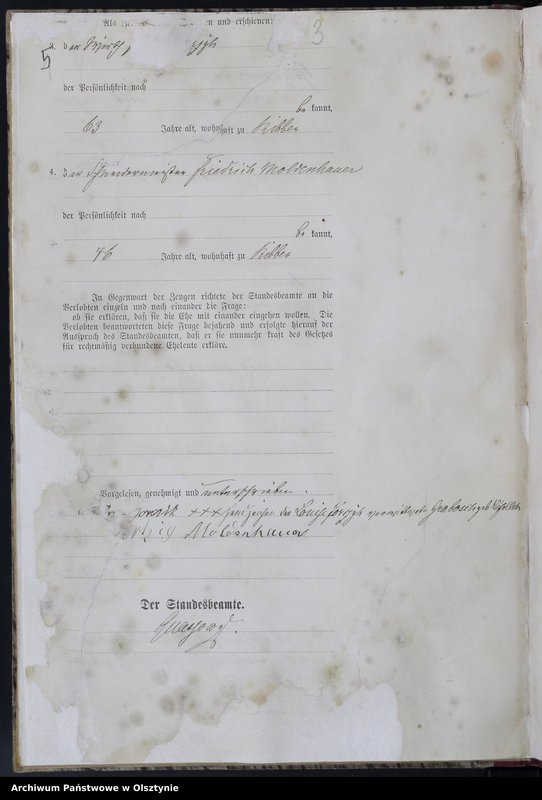 13
Als Zeugen waren zugezogen und erschienen:
5
3. der
der Persönlichkeit nach
be kannt,
63 Jahre alt, wohnhaft zu Ribben
4. der Schneidermeister Friedrich Moldenhauer
der Persönlichkeit nach
be kannt,
46 Jahre alt, wohnhaft zu Ribben
In Gegenwart der Zeugen richtete der Standesbeamte an die
Verlobten einzeln und nach einander die Frage:
ob sie erklären, daß sie die Ehe mit einander eingehen wollen. Die
Verlobten beantworteten diese Frage bejahend und erfolgte hierauf der
Ausspruch des Standesbeamten, daß er sie nunmehr kraft des Gesetzes
für rechtmäßig verbundene Eheleute erkläre.
Vorgelesen, genehmigt und unterschrieben.
+++ Handzeichen der Louise verwittwete geb
Moldenhauer
Der Standesbeamte.
Archiwum Państwowe w Olsztynie